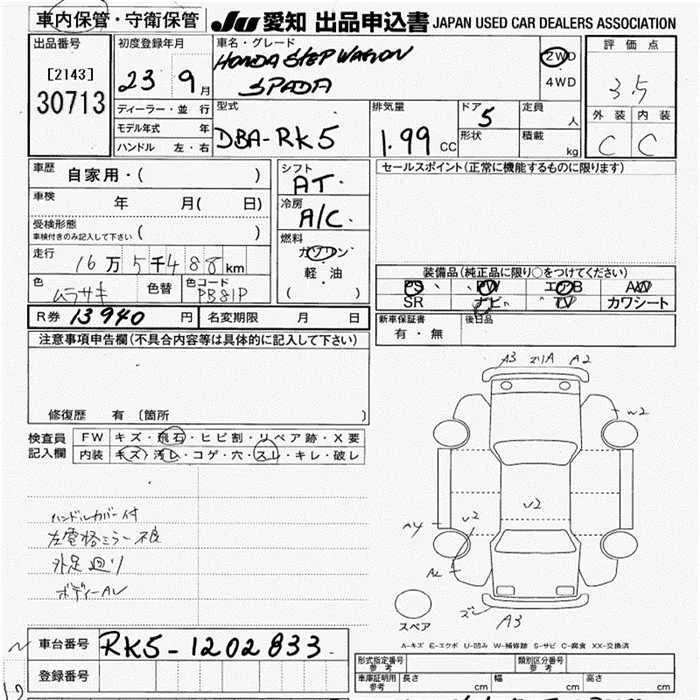 車内保管・守衛保管 JU 愛知 出品申込書 JAPAN USED CAR DEALERS ASSOCIATION
出品番号 初度登録年月 車名・グレード 評価点
[2143] 23 9月 HONDA STEP WAGON 2WD 3.5
30713 SPADA 4WD
ディーラー・並行 型式 排気量 ドア 定員 外装 内装
モデル年式 年 DBA-RK5 1.99 CC 5 人 C C
ハンドル 左・右 形状 積載 kg
車歴 自家用・( ) シフト AT. セールスポイント(正常に機能するものに限ります)
車検 年 月( 日) 冷房 A/C.
受検形態
車検付きのみ記入して下さい ( ) 燃料 ガソリン
走行 16万5千488km 軽・油
色 ムラサキ 色替 色コード PB81P ( )
装備品(純正品に限り○をつけてください)
PS PW エアB AW
SR ナビ TV カワシート
R券 13940円 名変期限 月 日 新車保証書 有・無 後日品
注意事項申告欄(不具合内容等は具体的に記入して下さい)
修復歴 有 (箇所 )
検査員 FW キズ・飛石・ヒビ割・リペア跡・X要
記入欄 内装 キズ・汚レ・コゲ・穴・スレ・キレ・破レ
A3 A2
W2
U2
A4 U2
A2
A3
ハンドルカバー付
左電格ミラー不良
外足廻り
スペア
A-キズ E-エクボ U-凹み W-補修跡 S-サビ C-腐食 XX-交換済
車台番号 RK5-1202833
登録番号
形式指定番号 参考 類別区分番号 参考
車庫証明用 参考 長さ cm 幅 cm 高さ cm